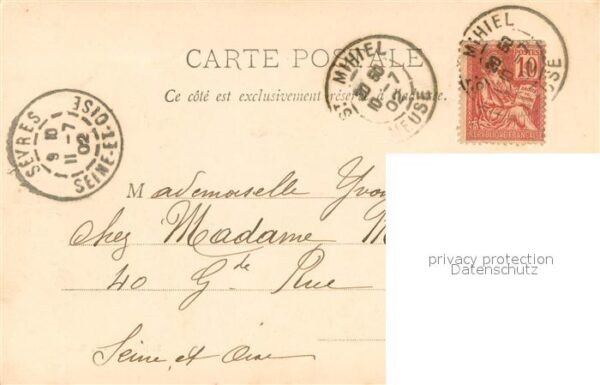 CARTE POSTALE
Ce côté est exclusivement réservé à l'adresse.
ST MIHIEL
10 -7
02
MEUSE
MIHIEL
EUSE
POSTES
10
REPUBLIQUE FRANÇAISE
SÈVRES
9 10
11-7
02
SEINE-ET-OISE
Mademoiselle Yvo
chez Madame M
40 Gde Rue
Seine et Oise
privacy protection
Datenschutz